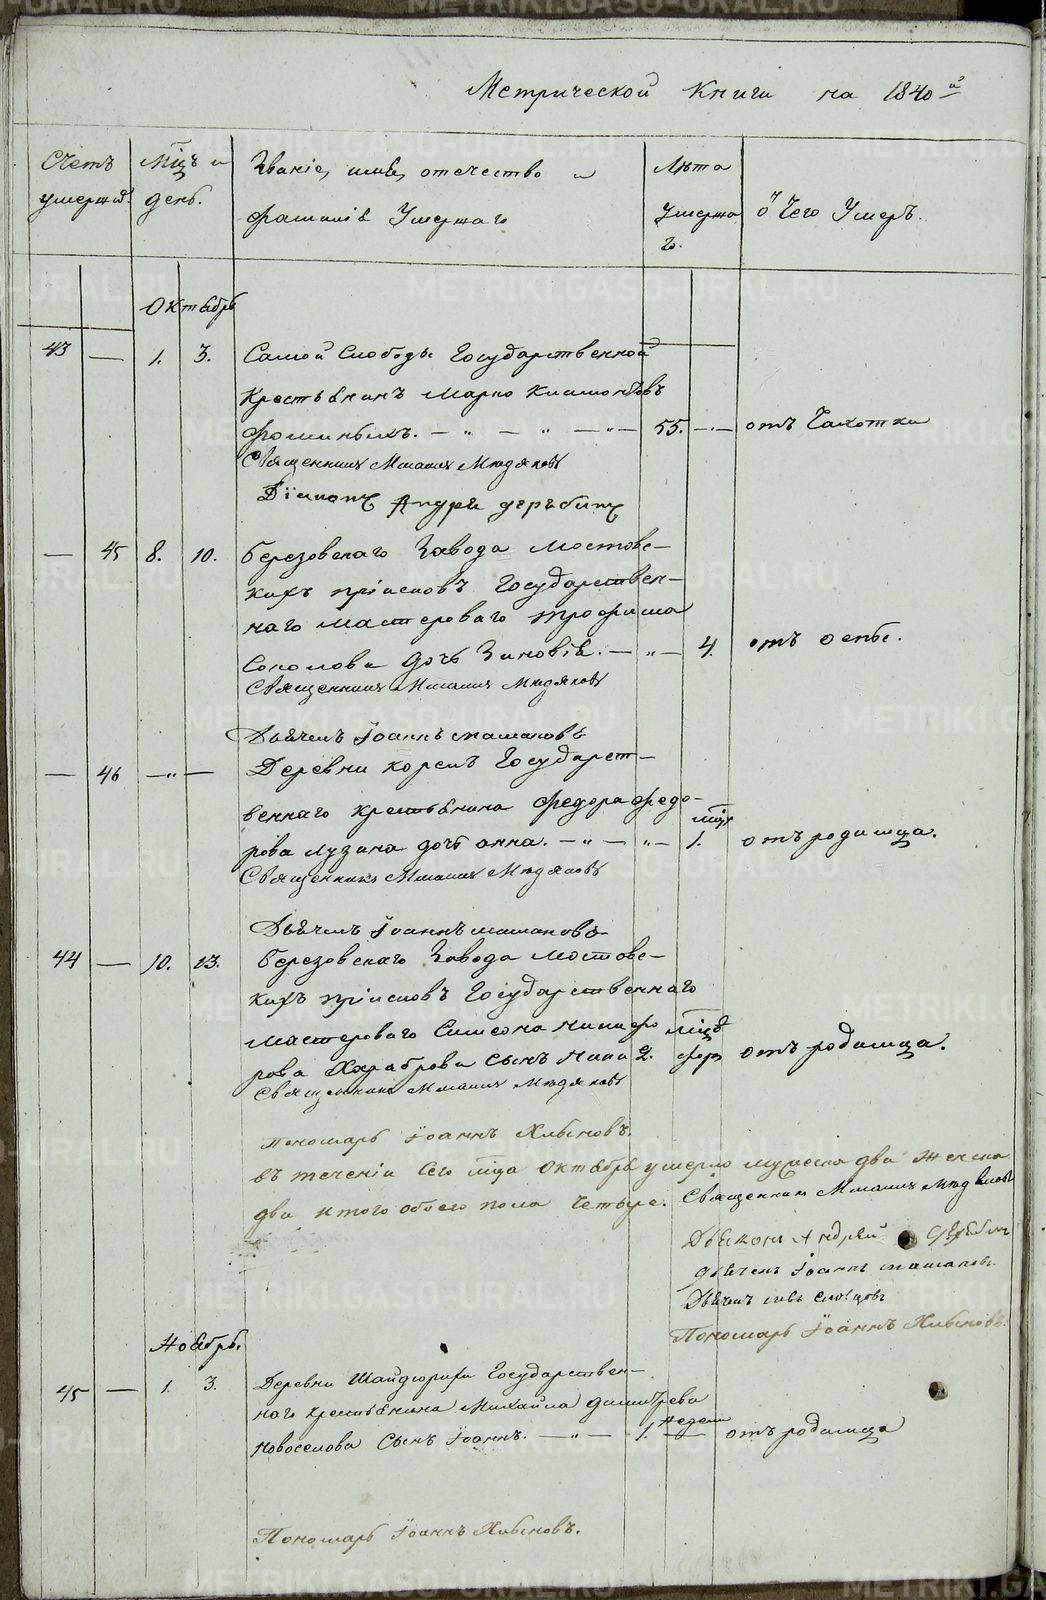 Метрической Книги на 1840й
Счетъ умершихъ
Мцъ и день.
Званіе, имя, отечество и фамилія Умершаго
Лѣта Умершаго.
О Чего Умеръ.
Октябрь
43 — 1. 3. Самой Слободы Государственной
крестьянинъ Марко Климонтовъ
Фоминыхъ. — „ — „ — „ — 55. — отъ Чахотки
Священникъ Михаилъ Мидяковъ
Діаконъ Андрей Дерябинъ
— 45 8. 10. Березовскаго Завода Мостовс-
кихъ пріисковъ Государствен-
наго мастероваго Трофима
Соколова дочь Зиновія. — „ — 4. отъ оспы.
Священникъ Михаилъ Мидяковъ
Дьячекъ Іоаннъ
— 46 — „ — Деревни Корелъ Государст-
веннаго крестьянина Федора Федо-
рова Лузина дочь Анна. — „ — „ — 1. мцъ отъ родимца.
Священникъ Михаилъ Мидяковъ
Дьячекъ Іоаннъ
44 — 10. 13. Березовскаго Завода Мостовс-
кихъ пріисковъ Государственнаго
мастероваго Симеона Никифо
рова Храброва сынъ 2. мцъ отъ родимца.
Священникъ Михаилъ Мидяковъ
Пономарь Іоаннъ Хлыновъ.
Въ теченіи Сего мца Октября умерло мужеска два женска
два итого обоего пола Четыре.
Священникъ Михаилъ Мидяковъ
Дьяконъ Андрей Дерябинъ
Дьячекъ Іоаннъ
Дьячекъ Левъ Словцовъ
Пономарь Іоаннъ Хлыновъ.
Ноябрь.
45 — 1. 3. Деревни Шайдурихи Государствен-
наго крестьянина Михайла Димитрева
Новоселова Сынъ Іоаннъ. — „ — 1. недели отъ родимца
Пономарь Іоаннъ Хлыновъ.
METRIKI.GASO-URAL.RU